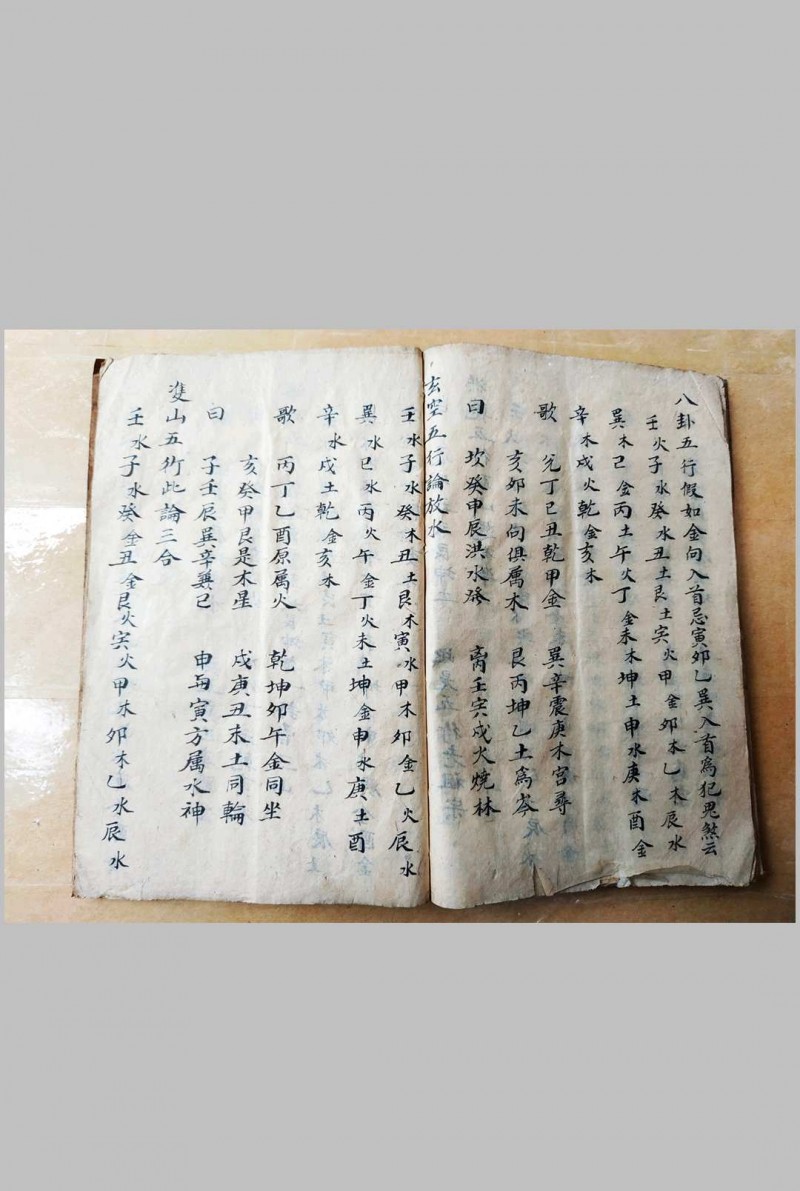 八卦五行假如金向入首忌寅卯乙巽入首為犯鬼煞云
壬火子水癸水丑土艮土寅火甲金卯木乙木辰水
巽木己金丙土午火丁金未木坤土申水庚木酉金
辛木戌火乾金亥木
歌 兌丁己丑乾甲金 巽辛震庚木宮尋
亥卯未向俱属木 艮丙坤乙土為岑
曰 坎癸申辰洪水發 离壬寅戌火燒林
玄空五行論放水
壬水子水癸木丑土艮木寅水甲木卯金乙火辰水
巽水巳水丙火午金丁火未土坤金申水庚土酉
辛水戌土乾金亥木
歌 丙丁乙酉原属火 乾坤卯午金同坐
亥癸甲艮是木星 戌庚丑未土同輪
曰 子壬辰巽辛兼已 申與寅方属水神
雙山五術此論三合
壬水子水癸金丑金艮火寅火甲木卯木乙水辰水